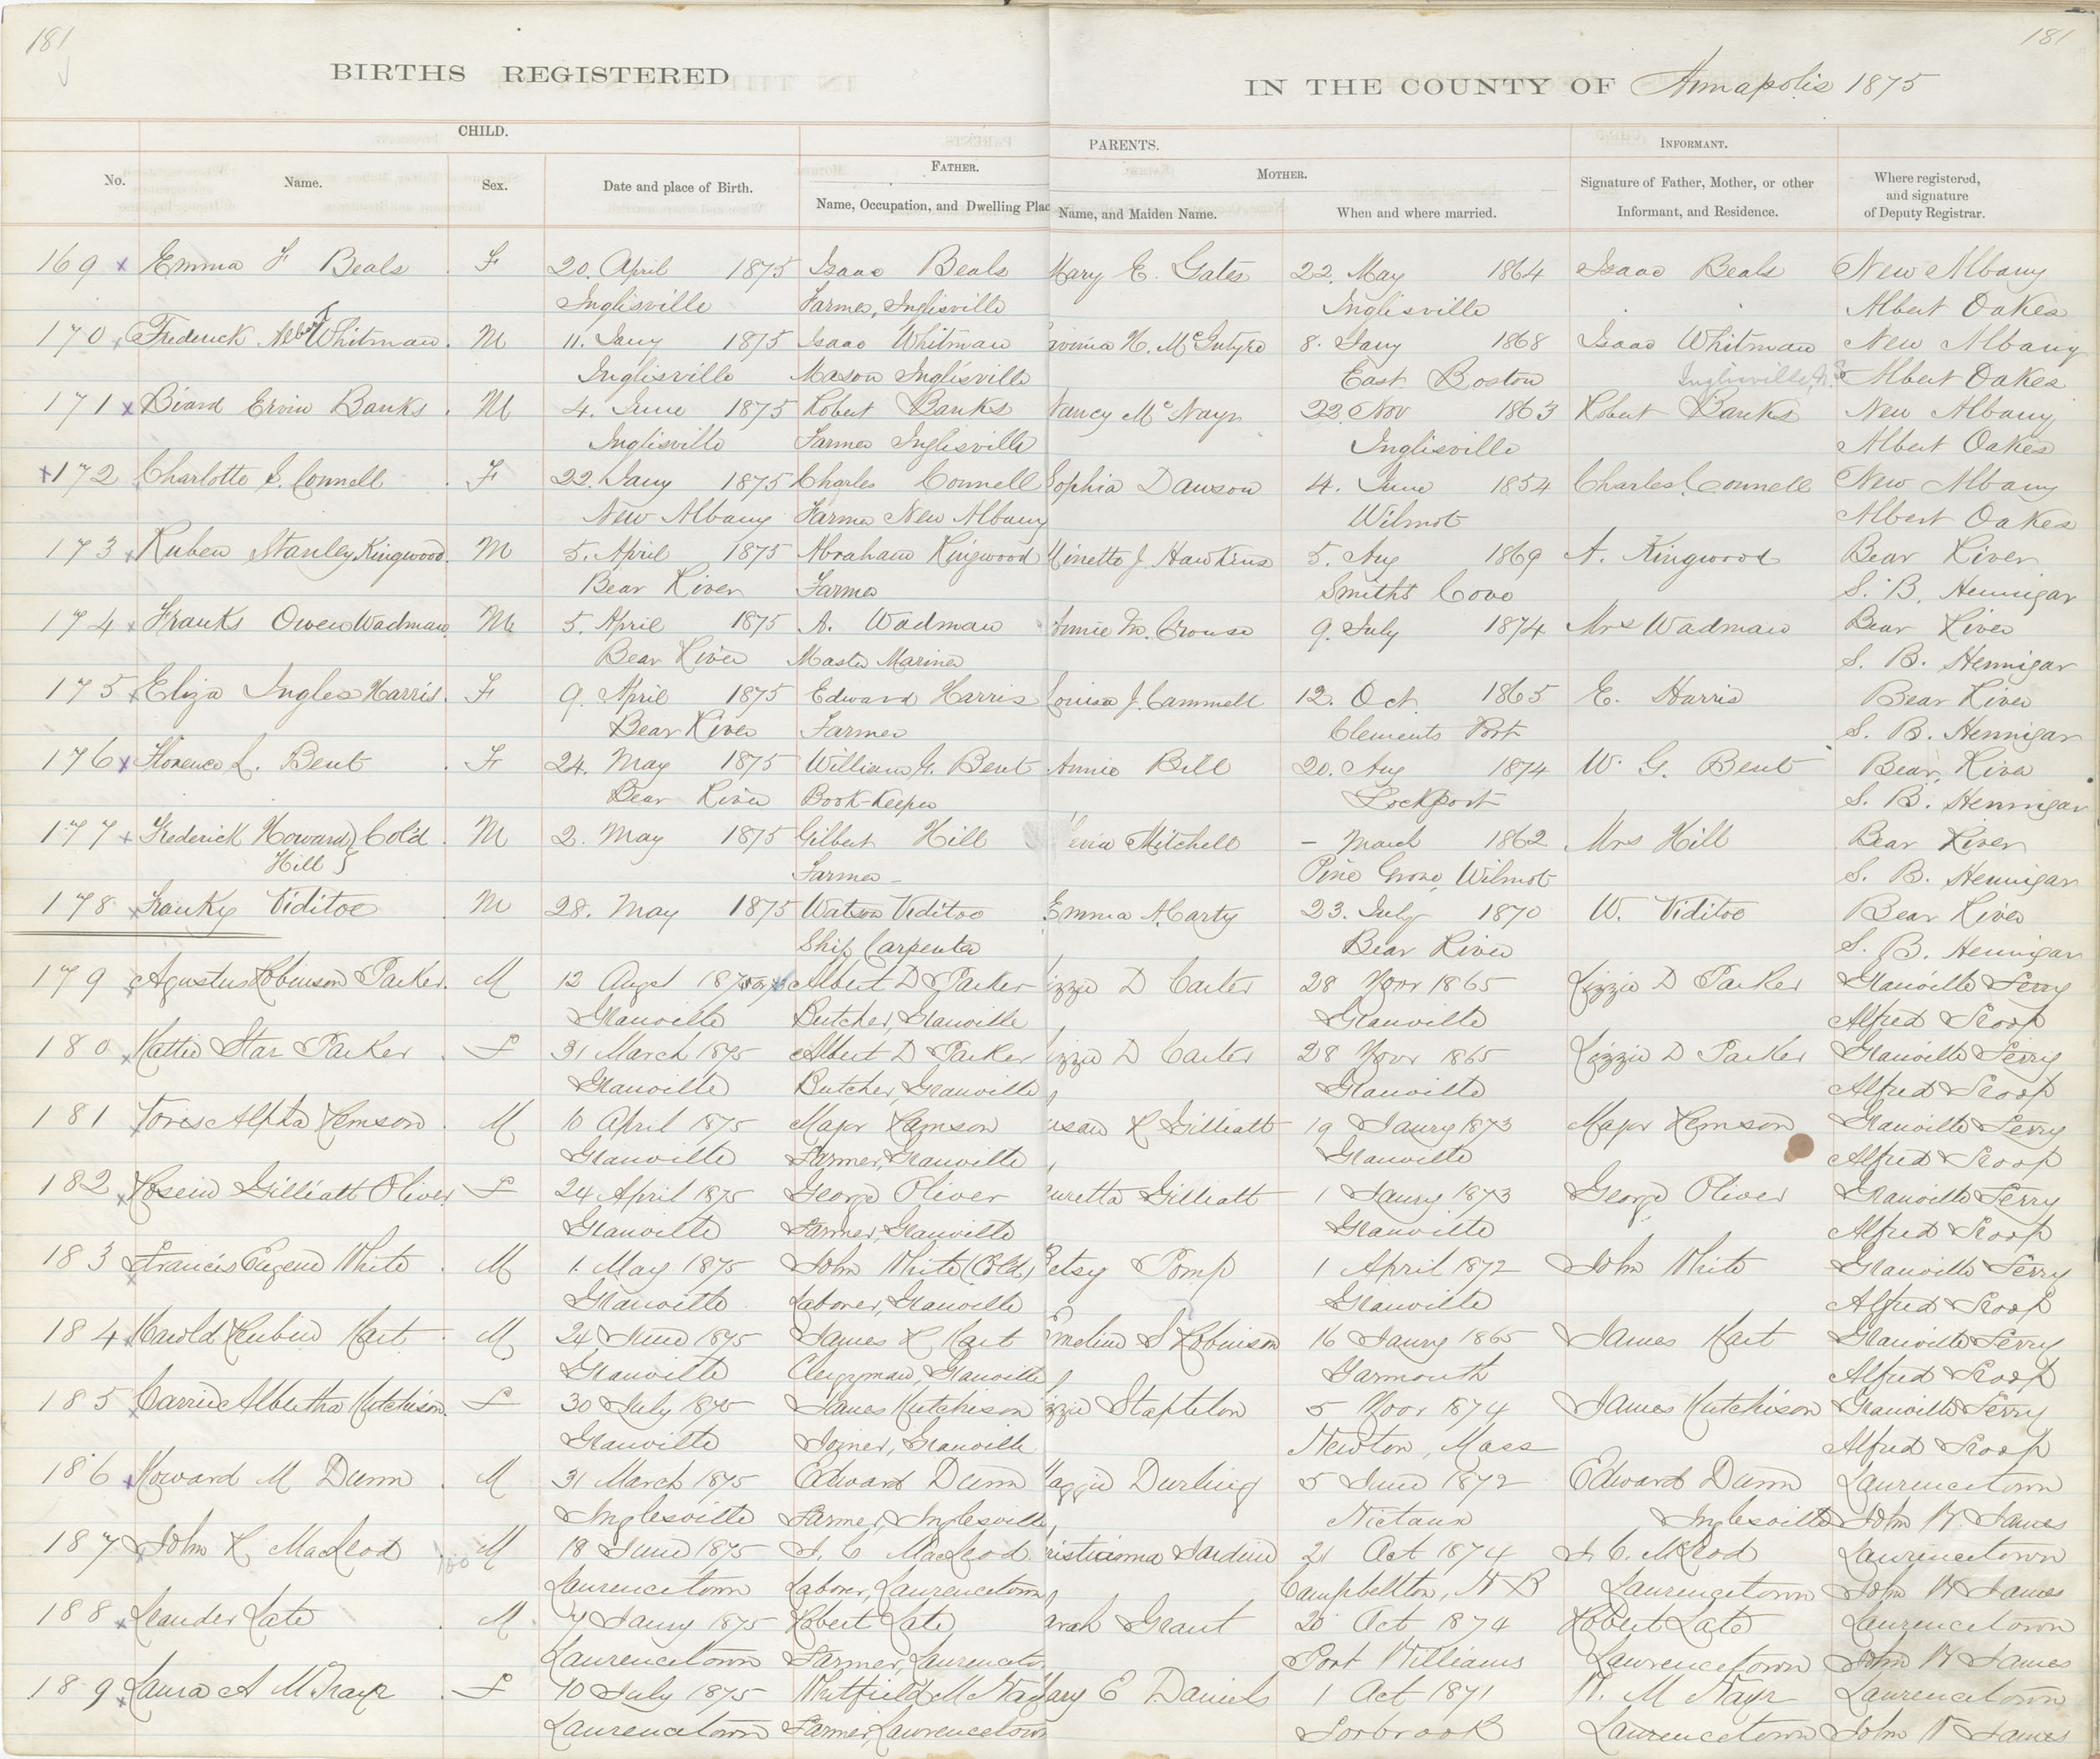 181 181
BIRTHS REGISTERED IN THE COUNTY OF Annapolis 1875
CHILD. PARENTS. INFORMANT.
FATHER. MOTHER.
No. Name. Sex. Date and place of Birth. Name, Occupation, and Dwelling Plac Name, and Maiden Name. When and where married. Signature of Father, Mother, or other Informant, and Residence. Where registered, and signature of Deputy Registrar.
169 x Emma F Beals F 20. April 1875 Isaac Beals Mary E. Gates 22. May 1864 Isaac Beals New Albany
Inglisville Farmer, Inglisville Inglisville Albert Oakes
170 x Frederick Albert Whitman M 11. Jany 1875 Isaac Whitman avinia H. McIntyre 8. Jany 1868 Isaac Whitman New Albany
Inglisville Mason Inglisville East Boston Inglisville, N.S. Albert Oakes
171 x Biard Ervin Banks M 4. June 1875 Robert Banks Nancy McNayr 22. Nov 1863 Robert Banks New Albany
Inglisville Farmer Inglisville Inglisville Albert Oakes
x 172 Charlotte S. Connell F 22. Jany 1875 Charles Connell Sophia Dawson 4. June 1854 Charles Connell New Albany
New Albany Farmer New Albany Wilmot Albert Oakes
173 x Ruben Stanley Kingwood M 5. April 1875 Abraham Kingwood Minetta J. Hawkins 5. Aug 1869 A. Kingwood Bear River
Bear River Farmer Smiths Cove S. B. Hennigar
174 x Franks Owen Wadman M 5. April 1875 A. Wadman Annie M. Crouse 9. July 1874 Mrs Wadman Bear River
Bear River Master Mariner S. B. Hennigar
175 x Eliza Ingles Harris F 9. April 1875 Edward Harris Louisa J. Cammell 12. Oct. 1865 E. Harris Bear River
Bear River Farmer Clements Port S. B. Hennigar
176 x Florence L. Bent F 24. May 1875 William G. Bent Annie Bill 20. Aug 1874 W. G. Bent Bear River
Bear River Book-Keeper Lockport S. B. Hennigar
177 x Frederick Howard } Col'd M 2. May 1875 Gilbert Hill Mitchell – March 1862 Mrs Hill Bear River
Hill Farmer – Pine Grove, Wilmot S. B. Hennigar
178 x Franky Viditoe M 28. May 1875 Watson Viditoe Emma A. Carty 23. July 1870 W. Viditoe Bear River
Ship Carpenter Bear River S. B. Hennigar
179 x Agustus Robinson Parker M 12 Augst Albert D Parker izzie D Carter 28 Novr 1865 Lizzie D Parker Granville Ferry
Granville Butcher, Granville Granville Alfred Troop
180 x Hattie Star Parker F 31 March 1875 Albert D Parker izzie D Carter 28 Novr 1865 Lizzie D Parker Granville Ferry
Granville Butcher, Granville Granville Alfred Troop
181 Voris Alpha Hemson M 10 April 1875 Major Hamson usan R Gilliatt 19 Jany 1873 Major Hemson Granville Ferry
Granville Farmer, Granville Granville Alfred Troop
182 x Rosein Gilliatt Oliver F 24 April 1875 George Oliver uretta Gilliatt 1 Jany 1873 George Oliver Granville Ferry
Granville Farmer, Granville Granville Alfred Troop
183 x Francis Eugene White M 1. May 1875 John White (Cold.) Betsy Pomp 1 April 1872 John White Granville Ferry
Granville Laborer, Granville Granville Alfred Troop
184 x Harold Reuben Hart M 24 June 1875 James R Hart Emeline S Robinson 16 Jany 1865 James Hart Granville Ferry
Granville Clergyman, Granville Yarmouth Alfred Troop
185 x Carrie Albertha Hutchison F 30 July 1875 James Hutchison izzie Stapleton 5 Novr 1874 James Hutchison Granville Ferry
Granville Joiner, Granville Newton, Mass Alfred Troop
186 x Howard M Dunn M 31 March 1875 Edward Dunn Maggie Durling 5 June 1872 Edward Dunn Laurencetown
Inglesville Farmer, Inglesville Nictaux Inglesville John W. James
187 x John R MacLeod M 18 June 1875 J. C MacLeod ristianna Jardine 21 Oct 1874 J. C. McLeod Laurencetown
Laurencetown Laborer, Laurencetown Campbellton, N B Laurencetown John W James
188 x Leander Late M 7 Jany 1875 Robert Late arah Grant 20 Oct 1874 Robert Late Laurencetown
Laurencetown Farmer, Laurenceto Port Williams Lawrencetown John W James
189 x Laura A McNayr F 10 July 1875 Whitfield McNay Mary E Daniels 1 Oct 1871 W. McNayr Laurencetown
Laurencetown Farmer, Lawrencetown Torbrook Laurencetown John W James